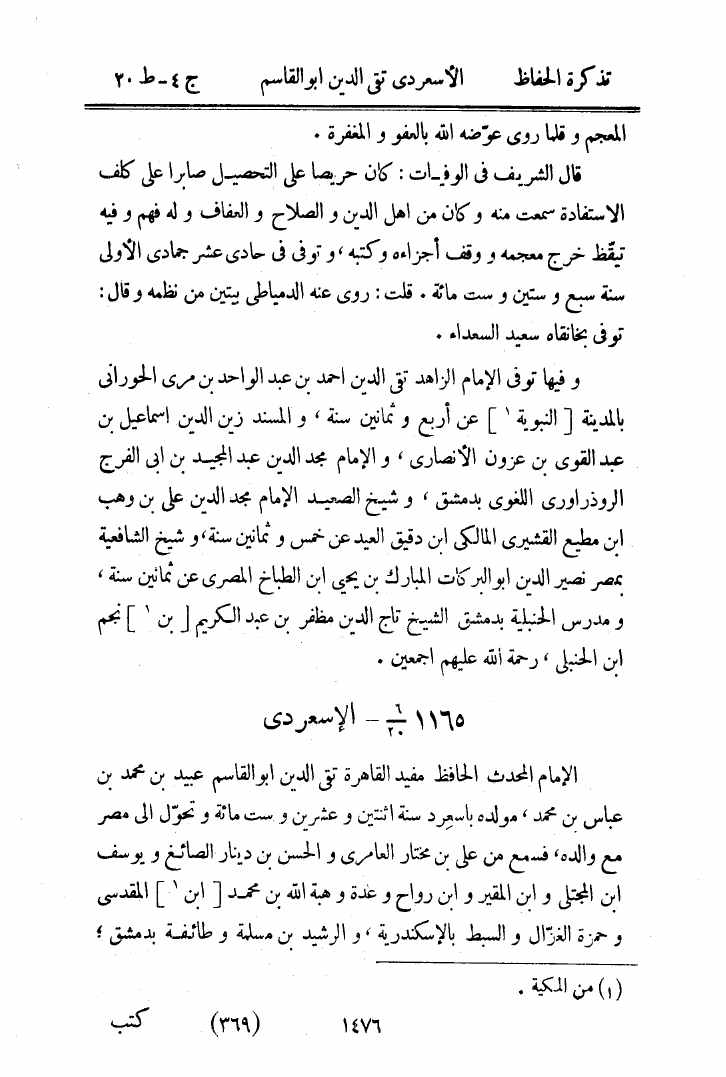 تذكرة الحفاظ الأسعردى تقى الدين ابو القاسم ج ٤ - ط ٢٠
المعجم و قلما روى عوّضه الله بالعفو و المغفرة .
قال الشريف فى الوفيات : كان حريصا على التحصيل صابرا على كلف
الاستفادة سمعت منه و كان من اهل الدين و الصلاح و العفاف و له فهم و فيه
تيقّظ خرج معجمه و وقف أجزاءه وكتبه ، و توفى فى حادى عشر جمادى الأولى
سنة سبع و ستين و ست مائة . قلت : روى عنه الدمياطى بيتين من نظمه و قال :
توفى بخانقاه سعيد السعداء .
و فيها توفى الإمام الزاهد تقى الدين احمد بن عبد الواحد بن مرى الحورانى
بالمدينة [ النبوية ١ ] عن أربع و ثمانين سنة ، و المسند زين الدين اسماعيل بن
عبد القوى بن عزون الأنصارى ، و الإمام مجد الدين عبد المجيد بن ابى الفرج
الروذراورى اللغوى بدمشق ، و شيخ الصعيد الإمام مجد الدين على بن وهب
ابن مطيع القشيرى المالكى ابن دقيق العيد عن خمس و ثمانين سنة ، و شيخ الشافعية
بمصر نصير الدين ابو البركات المبارك بن يحيى ابن الطباخ المصرى عن ثمانين سنة ،
و مدرس الحنبلية بدمشق الشيخ تاج الدين مظفر بن عبد الكريم [ بن ١ ] نجم
ابن الحنبلى ، رحمة الله عليهم اجمعين .
١١٦٥ ٦/٢٠ - الإسعردى
الإمام المحدث الحافظ مفيد القاهرة تقى الدين ابو القاسم عبيد بن محمد بن
عباس بن محمد ، مولده باسعرد سنة اثنتين و عشرين و ست مائة و تحوّل الى مصر
مع والده ، فسمع من على بن مختار العامرى و الحسن بن دينار الصائغ و يوسف
ابن المجتلى و ابن المقير و ابن رواح و عدة و هبة الله بن محمد [ ابن ١ ] المقدسى
و حمزة الغزّال و السبط بالإسكندرية ، و الرشيد بن مسلمة و طائفة بدمشق ؛
(١) من المكية .
١٤٧٦ (٣٦٩) كتب